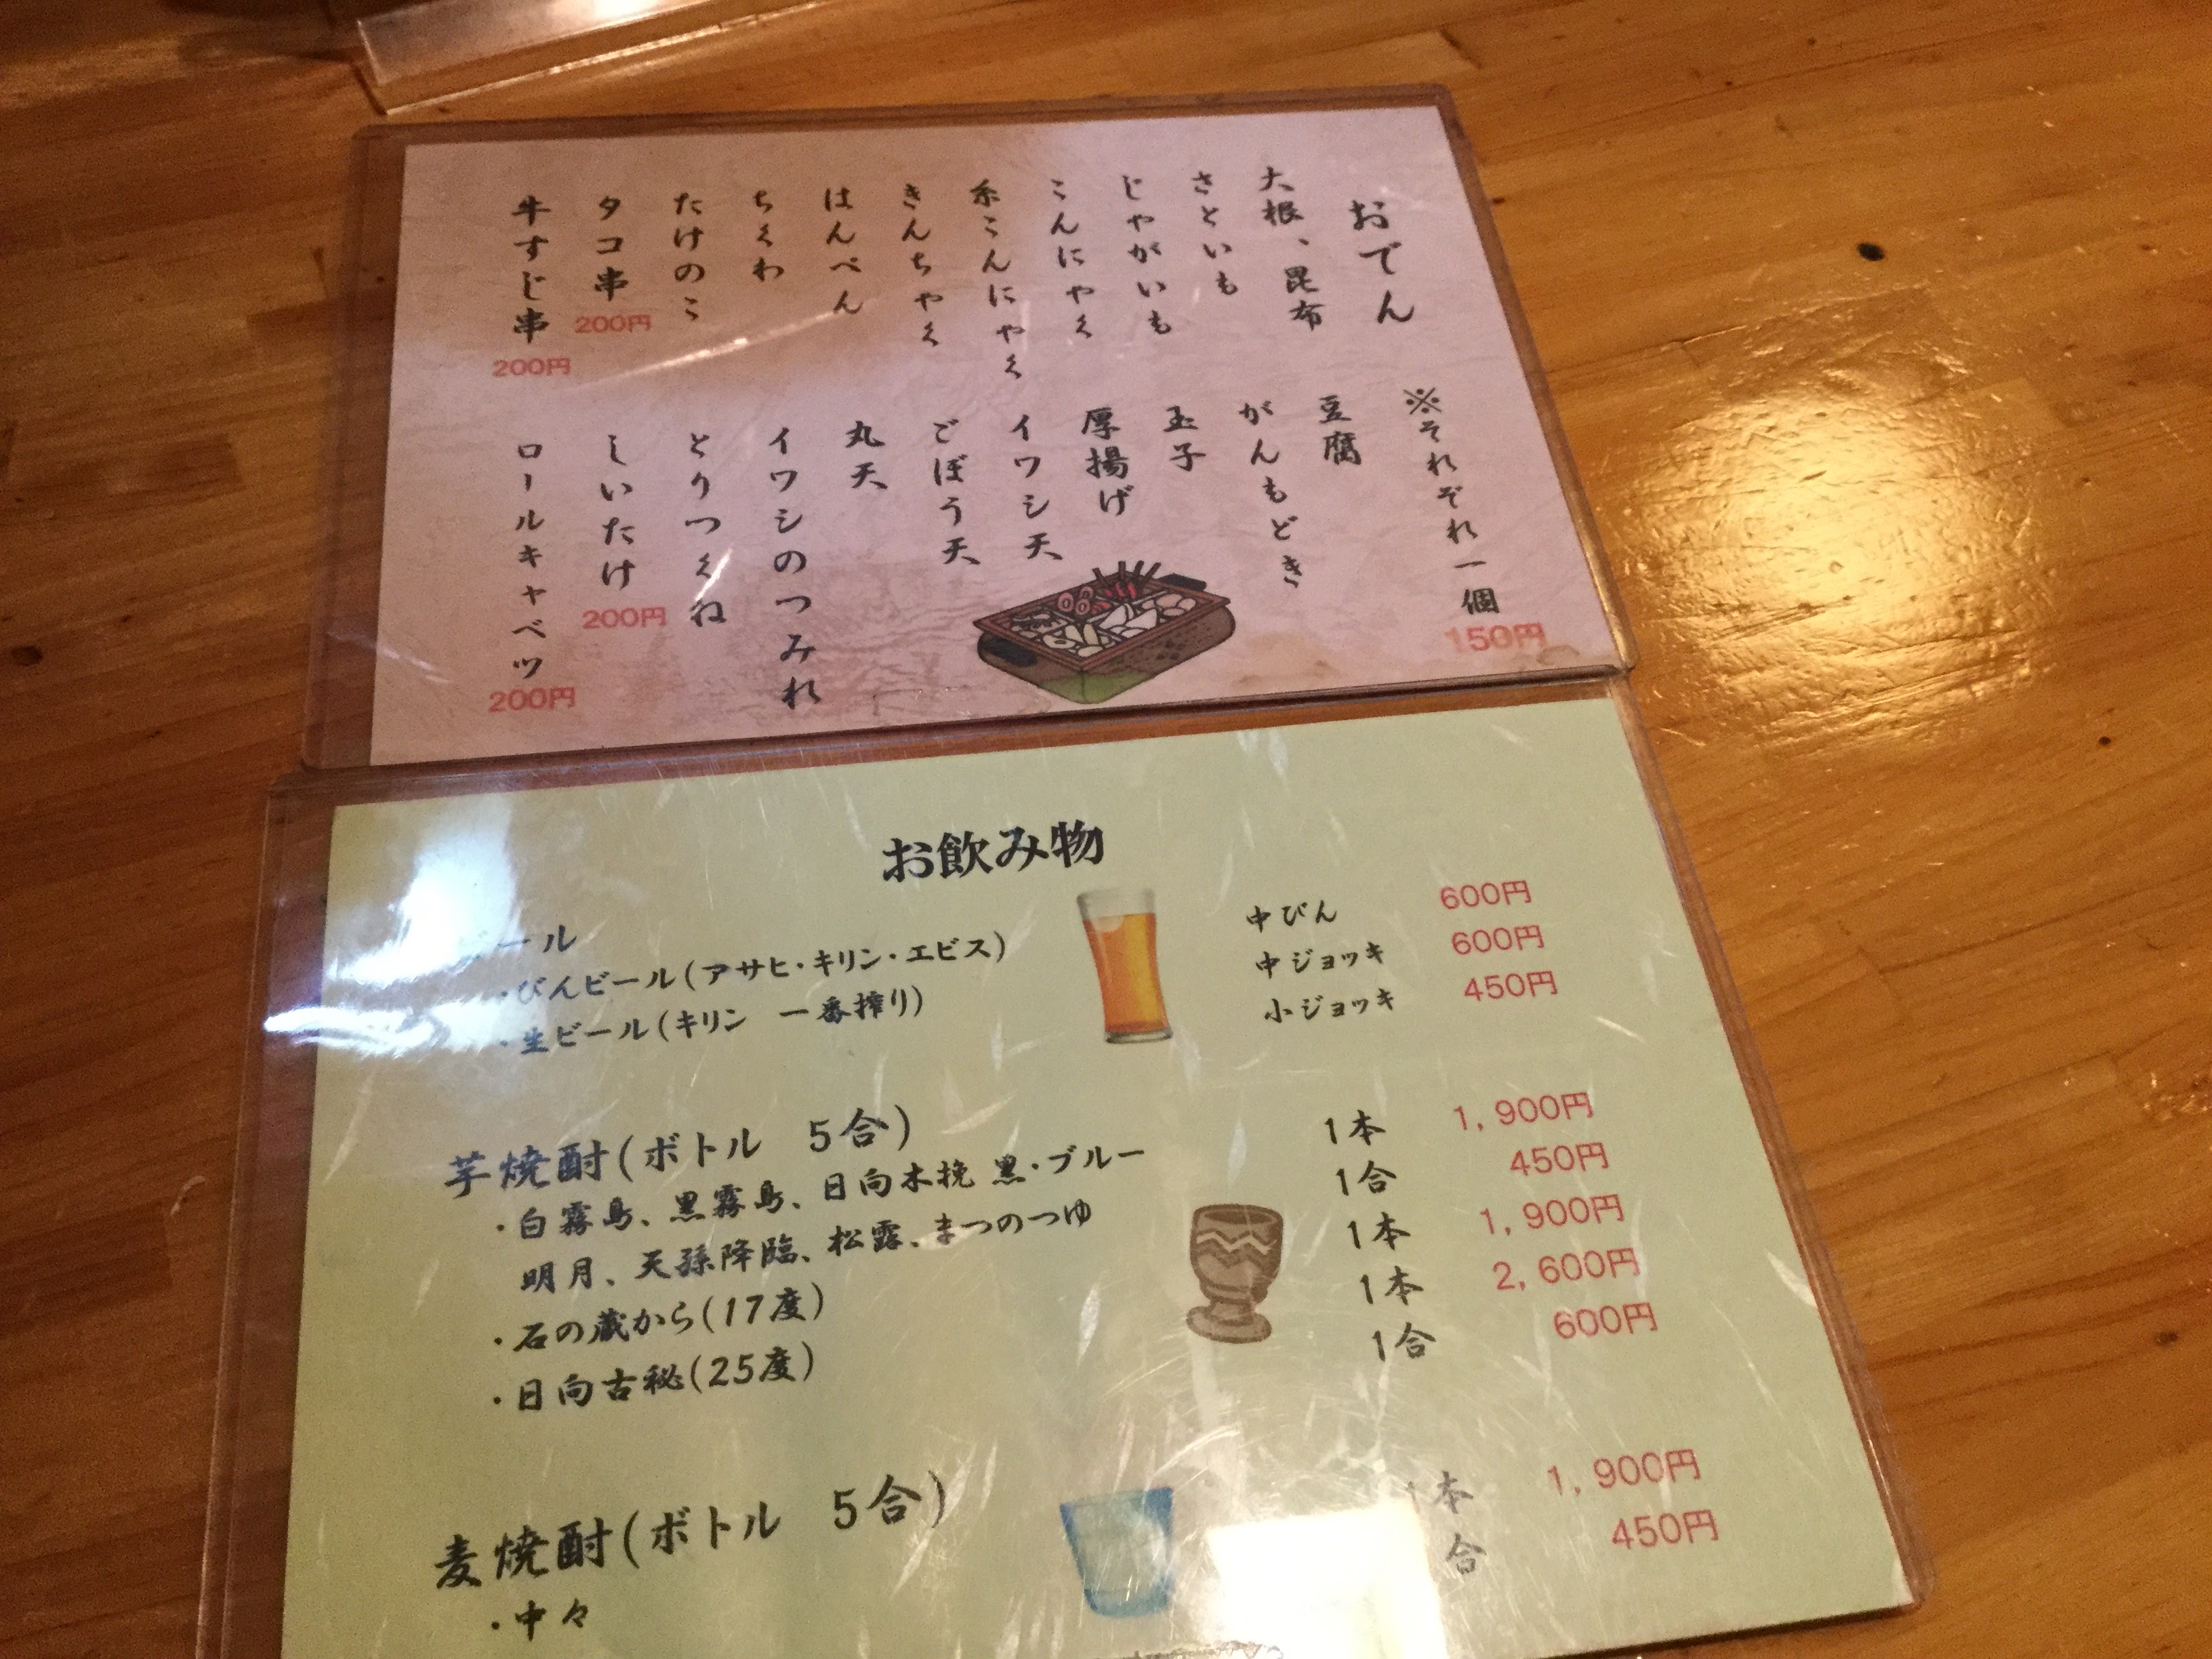 おでん
※それぞれ一個 150円
大根、昆布
さといも
じゃがいも
こんにゃく
糸こんにゃく
きんちゃく
はんぺん
ちくわ
たけのこ
タコ串 200円
牛すじ串 200円
豆腐
がんもどき
玉子
厚揚げ
イワシ天
ごぼう天
丸天
イワシのつみれ
とりつくね
しいたけ 200円
ロールキャベツ 200円
お飲み物
ール
・びんビール(アサヒ・キリン・エビス) 中びん 600円
・生ビール(キリン 一番搾り) 中ジョッキ 600円
小ジョッキ 450円
芋焼酎(ボトル 5合)
・白霧島、黒霧島、日向木挽 黒・ブルー 1本 1,900円
明月、天孫降臨、松露、まつのつゆ 1合 450円
・石の蔵から(17度) 1本 1,900円
・日向古秘(25度) 1本 2,600円
1合 600円
麦焼酎(ボトル 5合)
・中々 1本 1,900円
合 450円